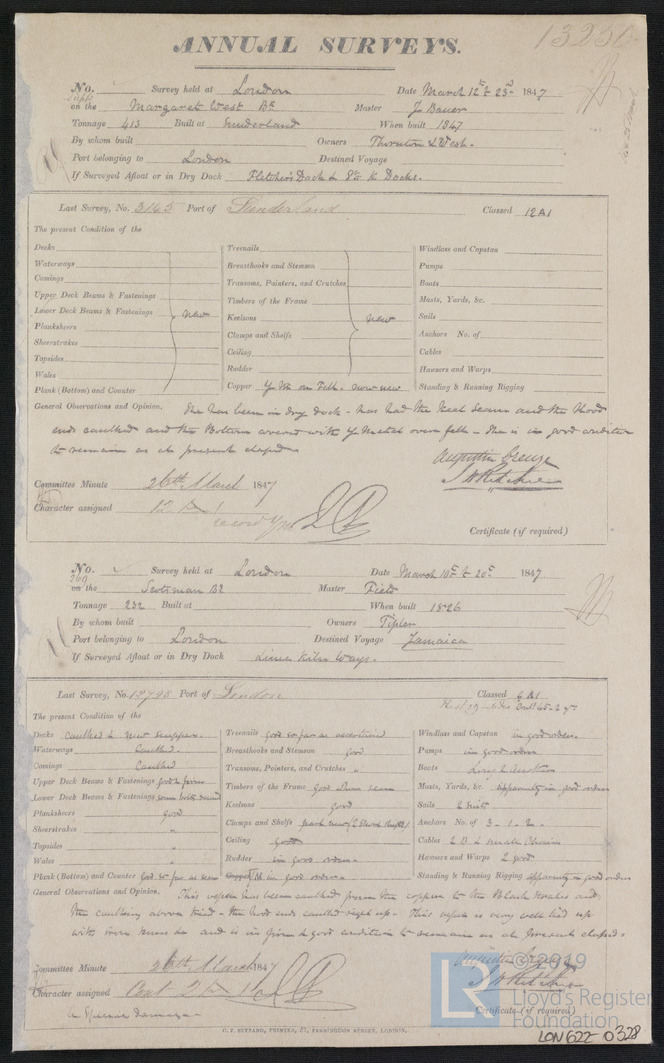 ANNUAL SURVEYS.
13250
No. Survey held at London Date March 12th & 23rd 1847
on the Margaret West Bk Master J Bauer
Tonnage 413 Built at Sunderland When built 1847
By whom built Owners Thornton & West.
Port belonging to London Destined Voyage
If Surveyed Afloat or in Dry Dock Fletcher's Dock & Docks.
Last Survey, No. 3165 Port of Sunderland Classed 12 A1
The present Condition of the
Decks Treenails Windlass and Capstan
Waterways Breasthooks and Stemson Pumps
Comings Transoms, Pointers, and Crutches Boats
Upper Deck Beams & Fastenings Timbers of the Frame Masts, Yards, &c.
Lower Deck Beams & Fastenings new Keelsons new Sails
Planksheers Clamps and Shelfs Anchors No. of
Sheerstrakes Ceiling Cables
Topsides Rudder Hawsers and Warps
Wales Copper Y.M. on Felt. now new Standing & Running Rigging
Plank (Bottom) and Counter
General Observations and Opinion. She has been in dry dock - has had the Keel Seams and the Hood
ends caulked and the Bottom covered with Y Metal over felt - She is in good condition
to remain as at present classed
Augustin Creuze
Committee Minute 26th March 1847
Character assigned 12 A1
record YM
Certificate (if required)
No. Survey held at London Date March 10th & 20th 1847
269
on the Scotsman B2 Master Field
Tonnage 232 Built at When built 1826
By whom built Owners Tipler
Port belonging to London Destined Voyage Jamaica
If Surveyed Afloat or in Dry Dock Lime Kiln Ways.
Last Survey, No. 12795 Port of London Classed 6 A1
The present Condition of the
Decks caulked & new scuppers. Treenails good so far as ascertained Windlass and Capstan in good order.
Waterways Caulked. Breasthooks and Stemson good Pumps in good order
Comings Caulked Transoms, Pointers, and Crutches " Boats Long &
Upper Deck Beams & Fastenings good & firm Timbers of the Frame good seen Masts, Yards, &c. apparently in good order
Lower Deck Beams & Fastenings some bolts Keelsons good Sails 2 suits
Planksheers good Clamps and Shelfs part new Anchors No. of 3 - 1 - 2 -
Sheerstrakes " Ceiling good Cables 2 B & Chain
Topsides " Rudder in good order. Hawsers and Warps 2 good
Wales " Copper YM in good order. Standing & Running Rigging apparently in good order
Plank (Bottom) and Counter Good so far as seen
General Observations and Opinion. This vessel has been caulked from the copper to the Black Strakes and
the caulking above tried - the hood ends caulked right up - This vessel is very well tied up
with iron and is in firm & good condition to remain as at present classed.
Augustin Creuze
Committee Minute 26th March 1847
Character assigned Cont 2
Certificate (if required)
C. F. SEYFANG, PRINTER, 57, FARRINGDON STREET, LONDON.
LR
©2019
Lloyd's Register
Foundation
LON622-0328